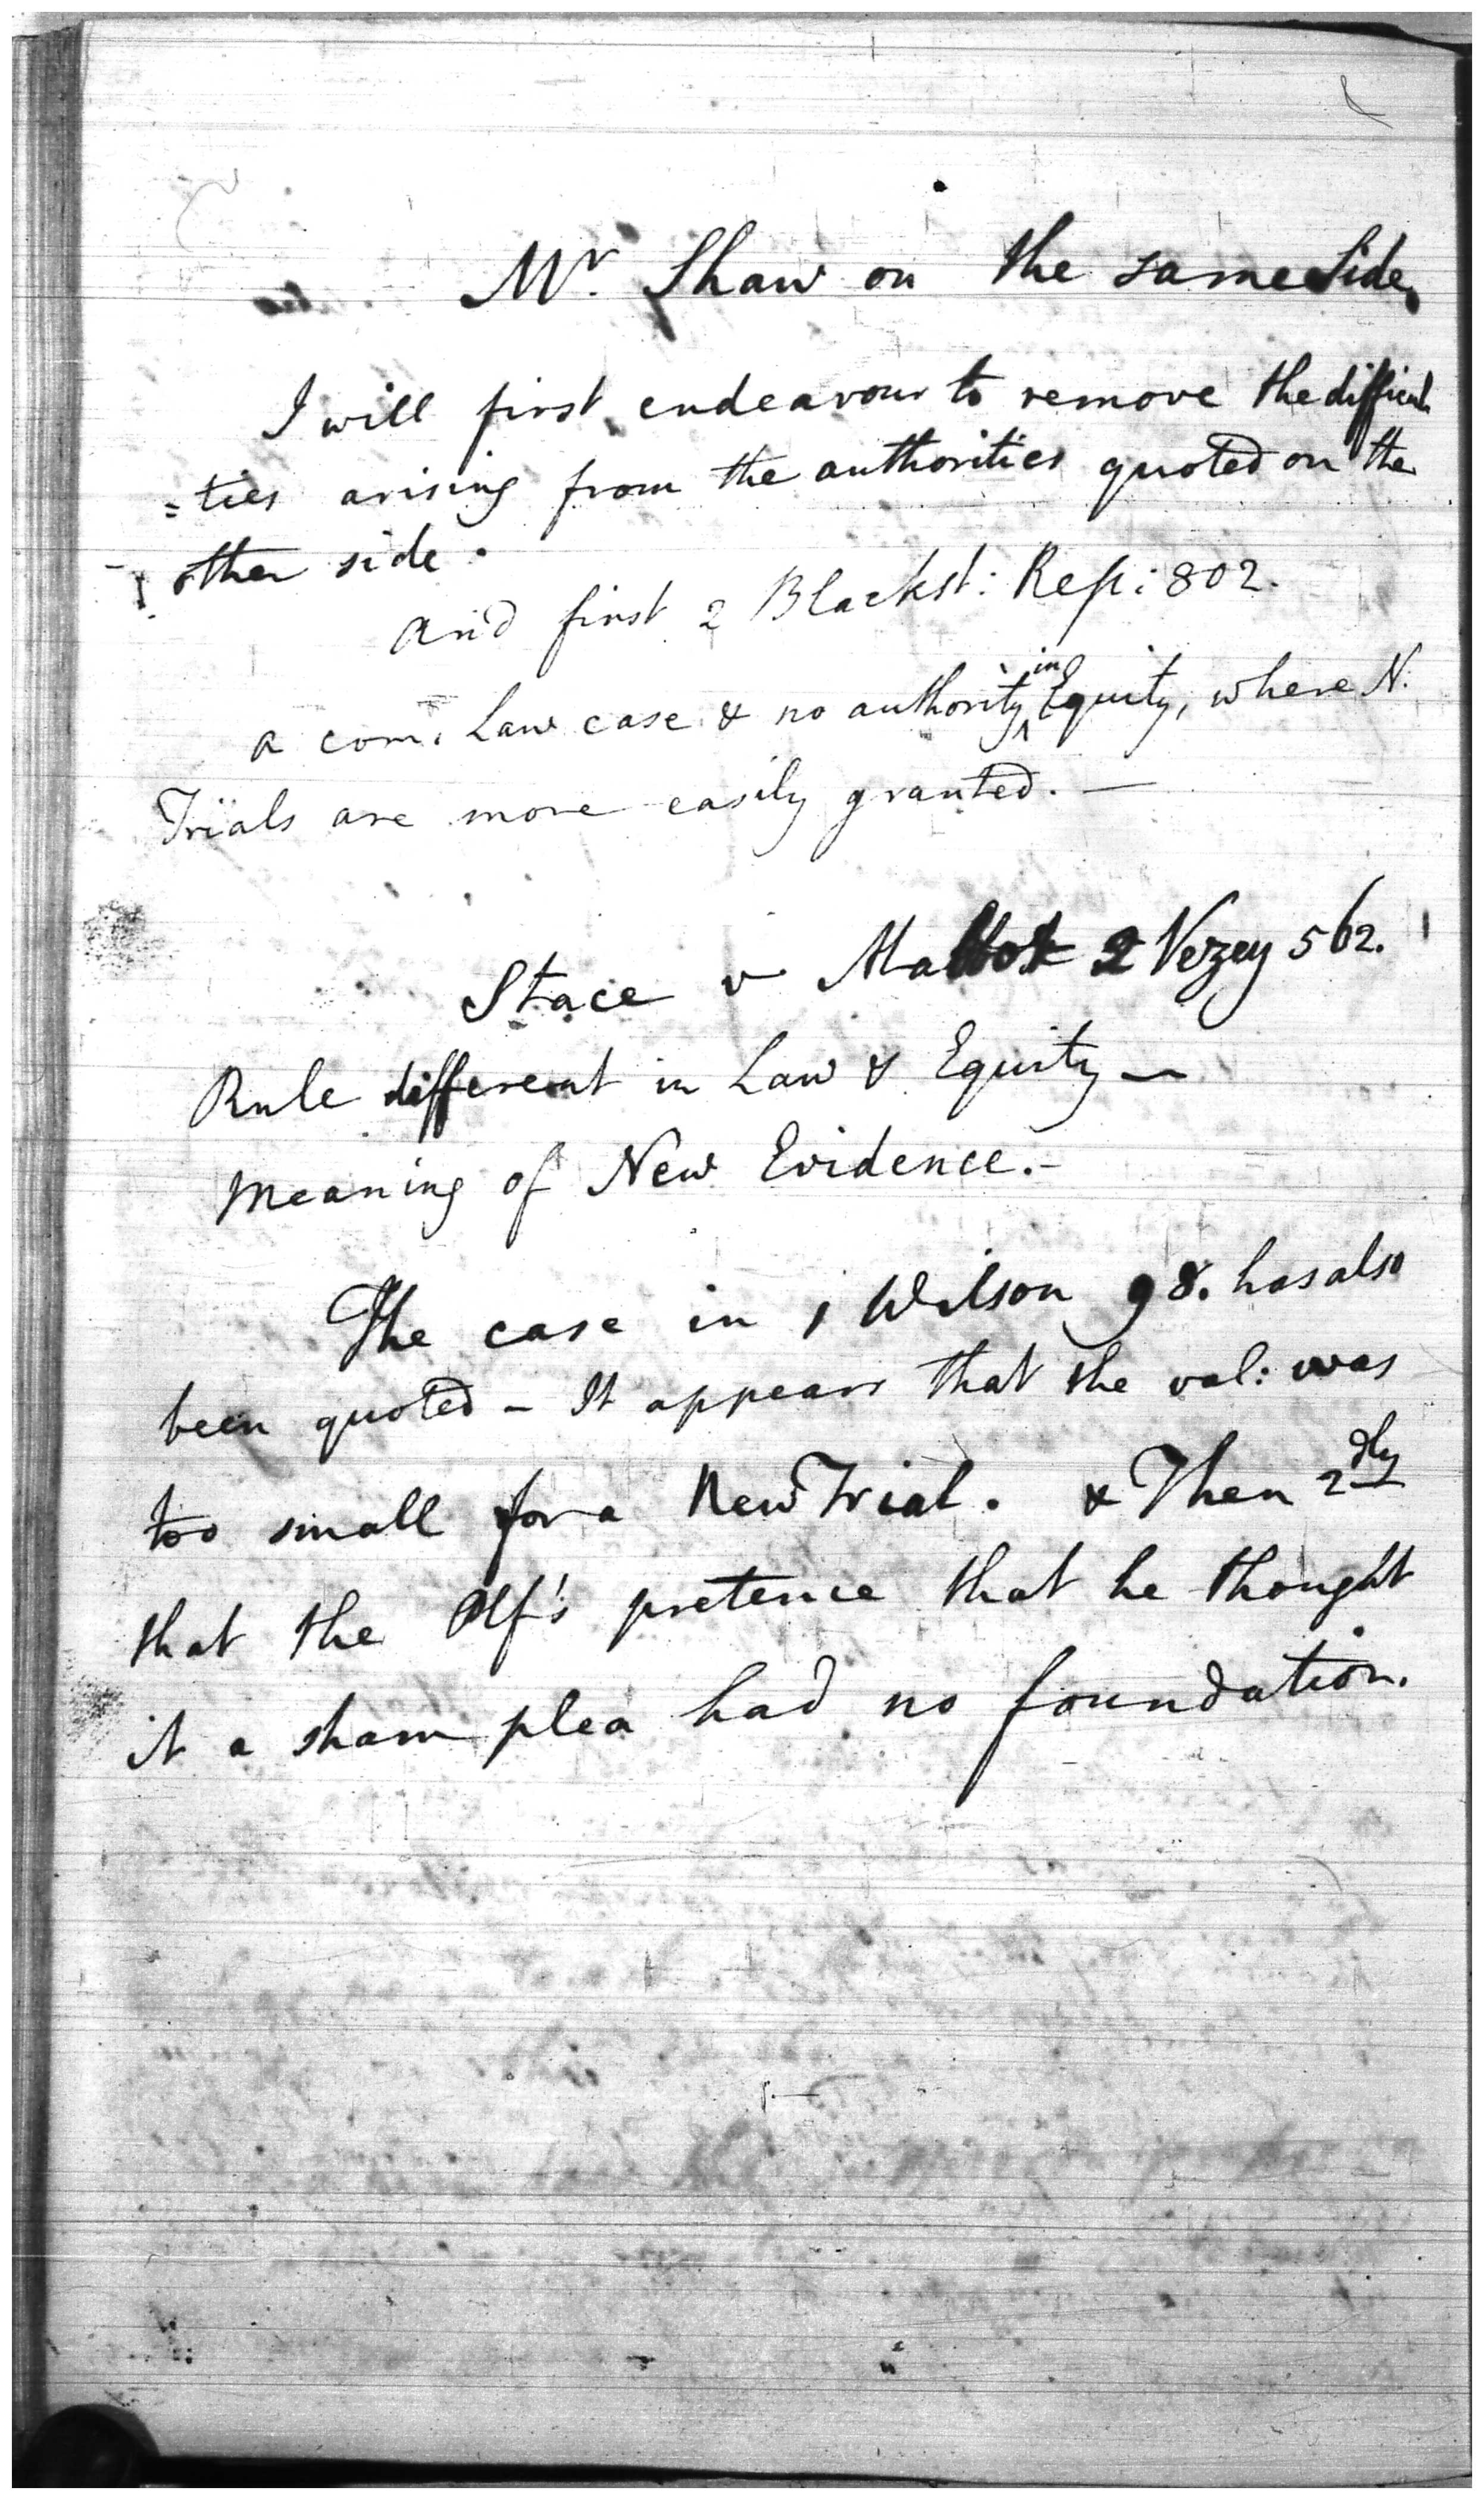 Mr. Shaw on the same Side,
I will first endeavour to remove the difficul
=ties arising from the authorities quoted on the
other side.
and first 2 Blackst: Rep: 802.
a com. Law case & no authority in Equity, where N.
Trials are more easily granted. —
Stace v Mabbot 2 Vezey 562.
Rule different in Law & Equity —
Meaning of New Evidence. -
The case in 1 Wilson 98. has also
been quoted - It appears that the val: was
too small for a New Trial. & Then 2dly
that the Plf's pretence that he thought
it a sham plea had no foundation.